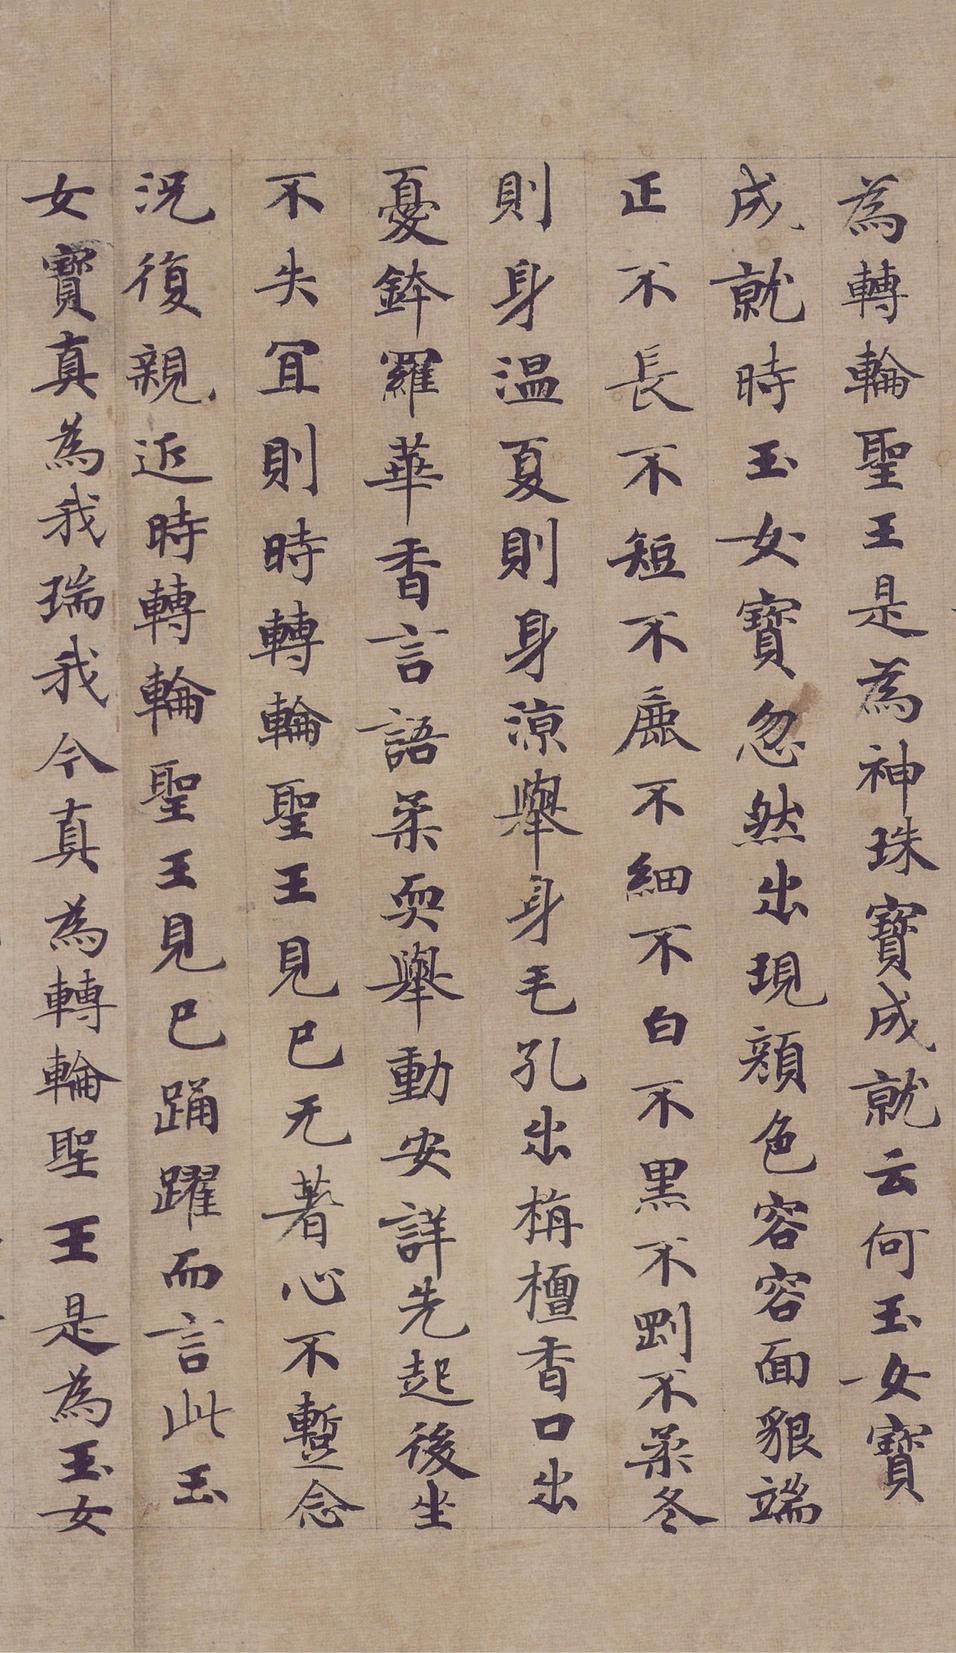 為轉輪聖王是為神珠寶成就云何玉女寶
成就時玉女寶忽然出現顏色容容面貌端
正不長不短不麁不細不白不黑不剛不柔冬
則身温夏則身涼舉身毛孔出栴檀香口出
憂鉢羅華香言語柔耎舉動安詳先起後坐
不失冝則時轉輪聖王見已无著心不蹔念
況復親近時轉輪聖王見已踊躍而言此玉
女寶真為我瑞我今真為轉輪聖王是為玉女